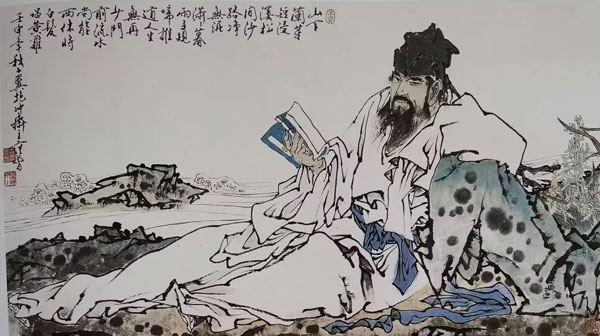 山下
蘭芽
短浸
溪松
間沙
路淨
無泥
瀟暮
雨子規
啼誰
道人生
無再
少門
前流水
尚能
西休將
白髮
唱黃雞
壬申年秋